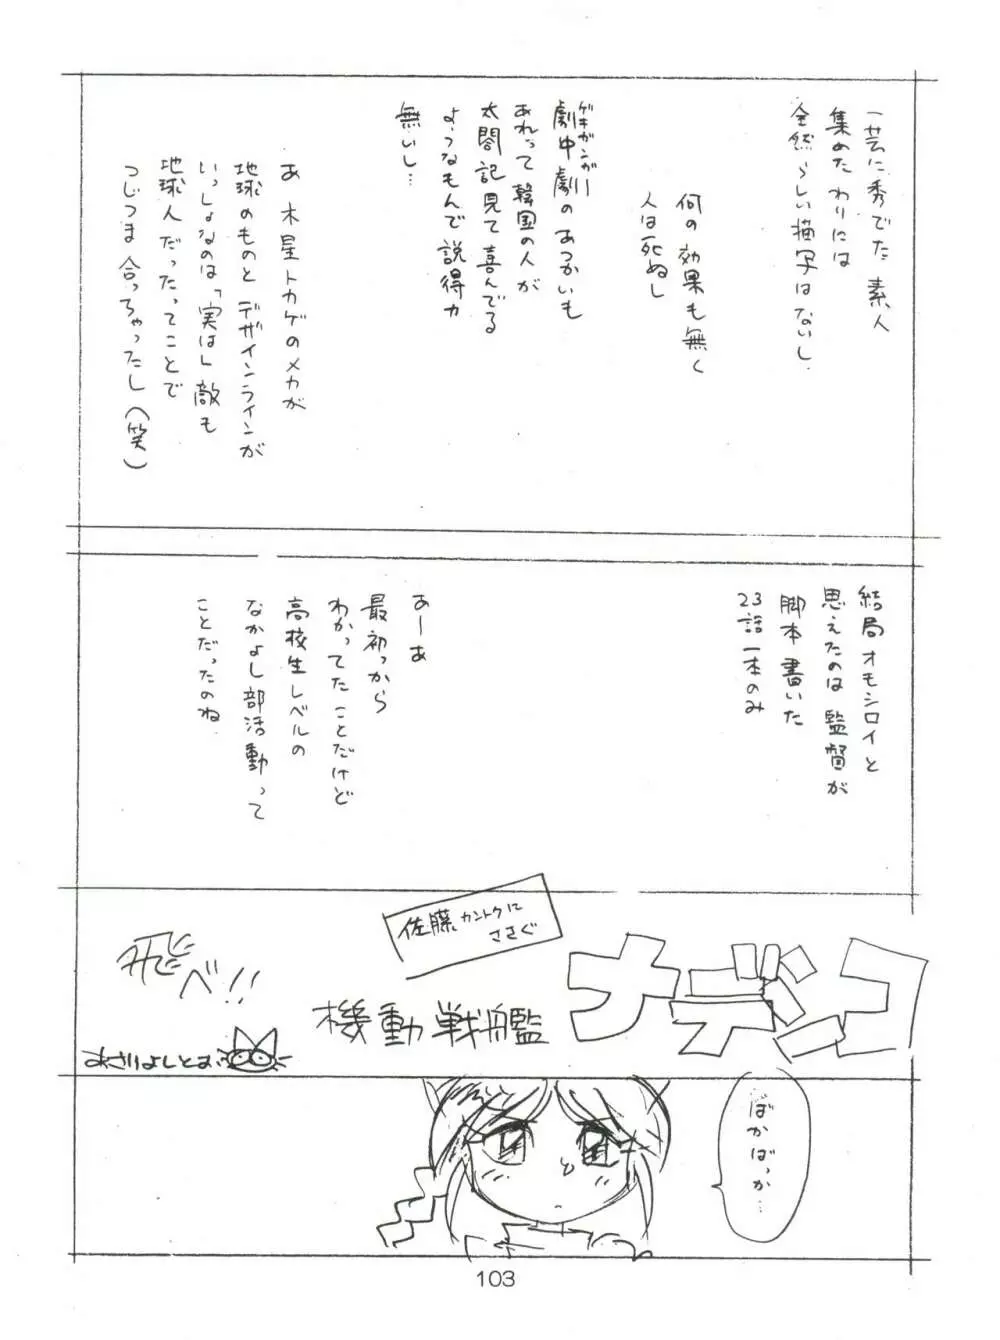 一芸に秀でた素人
集めたわりには
全然らしい描写はないし
何の効果も無く
人は死ぬし
ゲキガンガー
劇中劇のあつかいも
あれって韓国の人が
太閤記見て喜んでる
ようなもんで説得力
無いし…
あ 木星トカゲのメカが
地球のものとデザインラインが
いっしょなのは「実は」敵も
地球人だったってことで
つじつま合っちゃったし(笑)
結局オモシロイと
思えたのは監督が
脚本書いた
23話一本のみ
あーあ
最初っから
わかってたことだけど
高校生レベルの
なかよし部活動って
ことだったのね
佐藤カントクに
ささぐ
飛べ!!
機動戦艦
ナデシコ
あさりよしとお
ばかばっか…
103